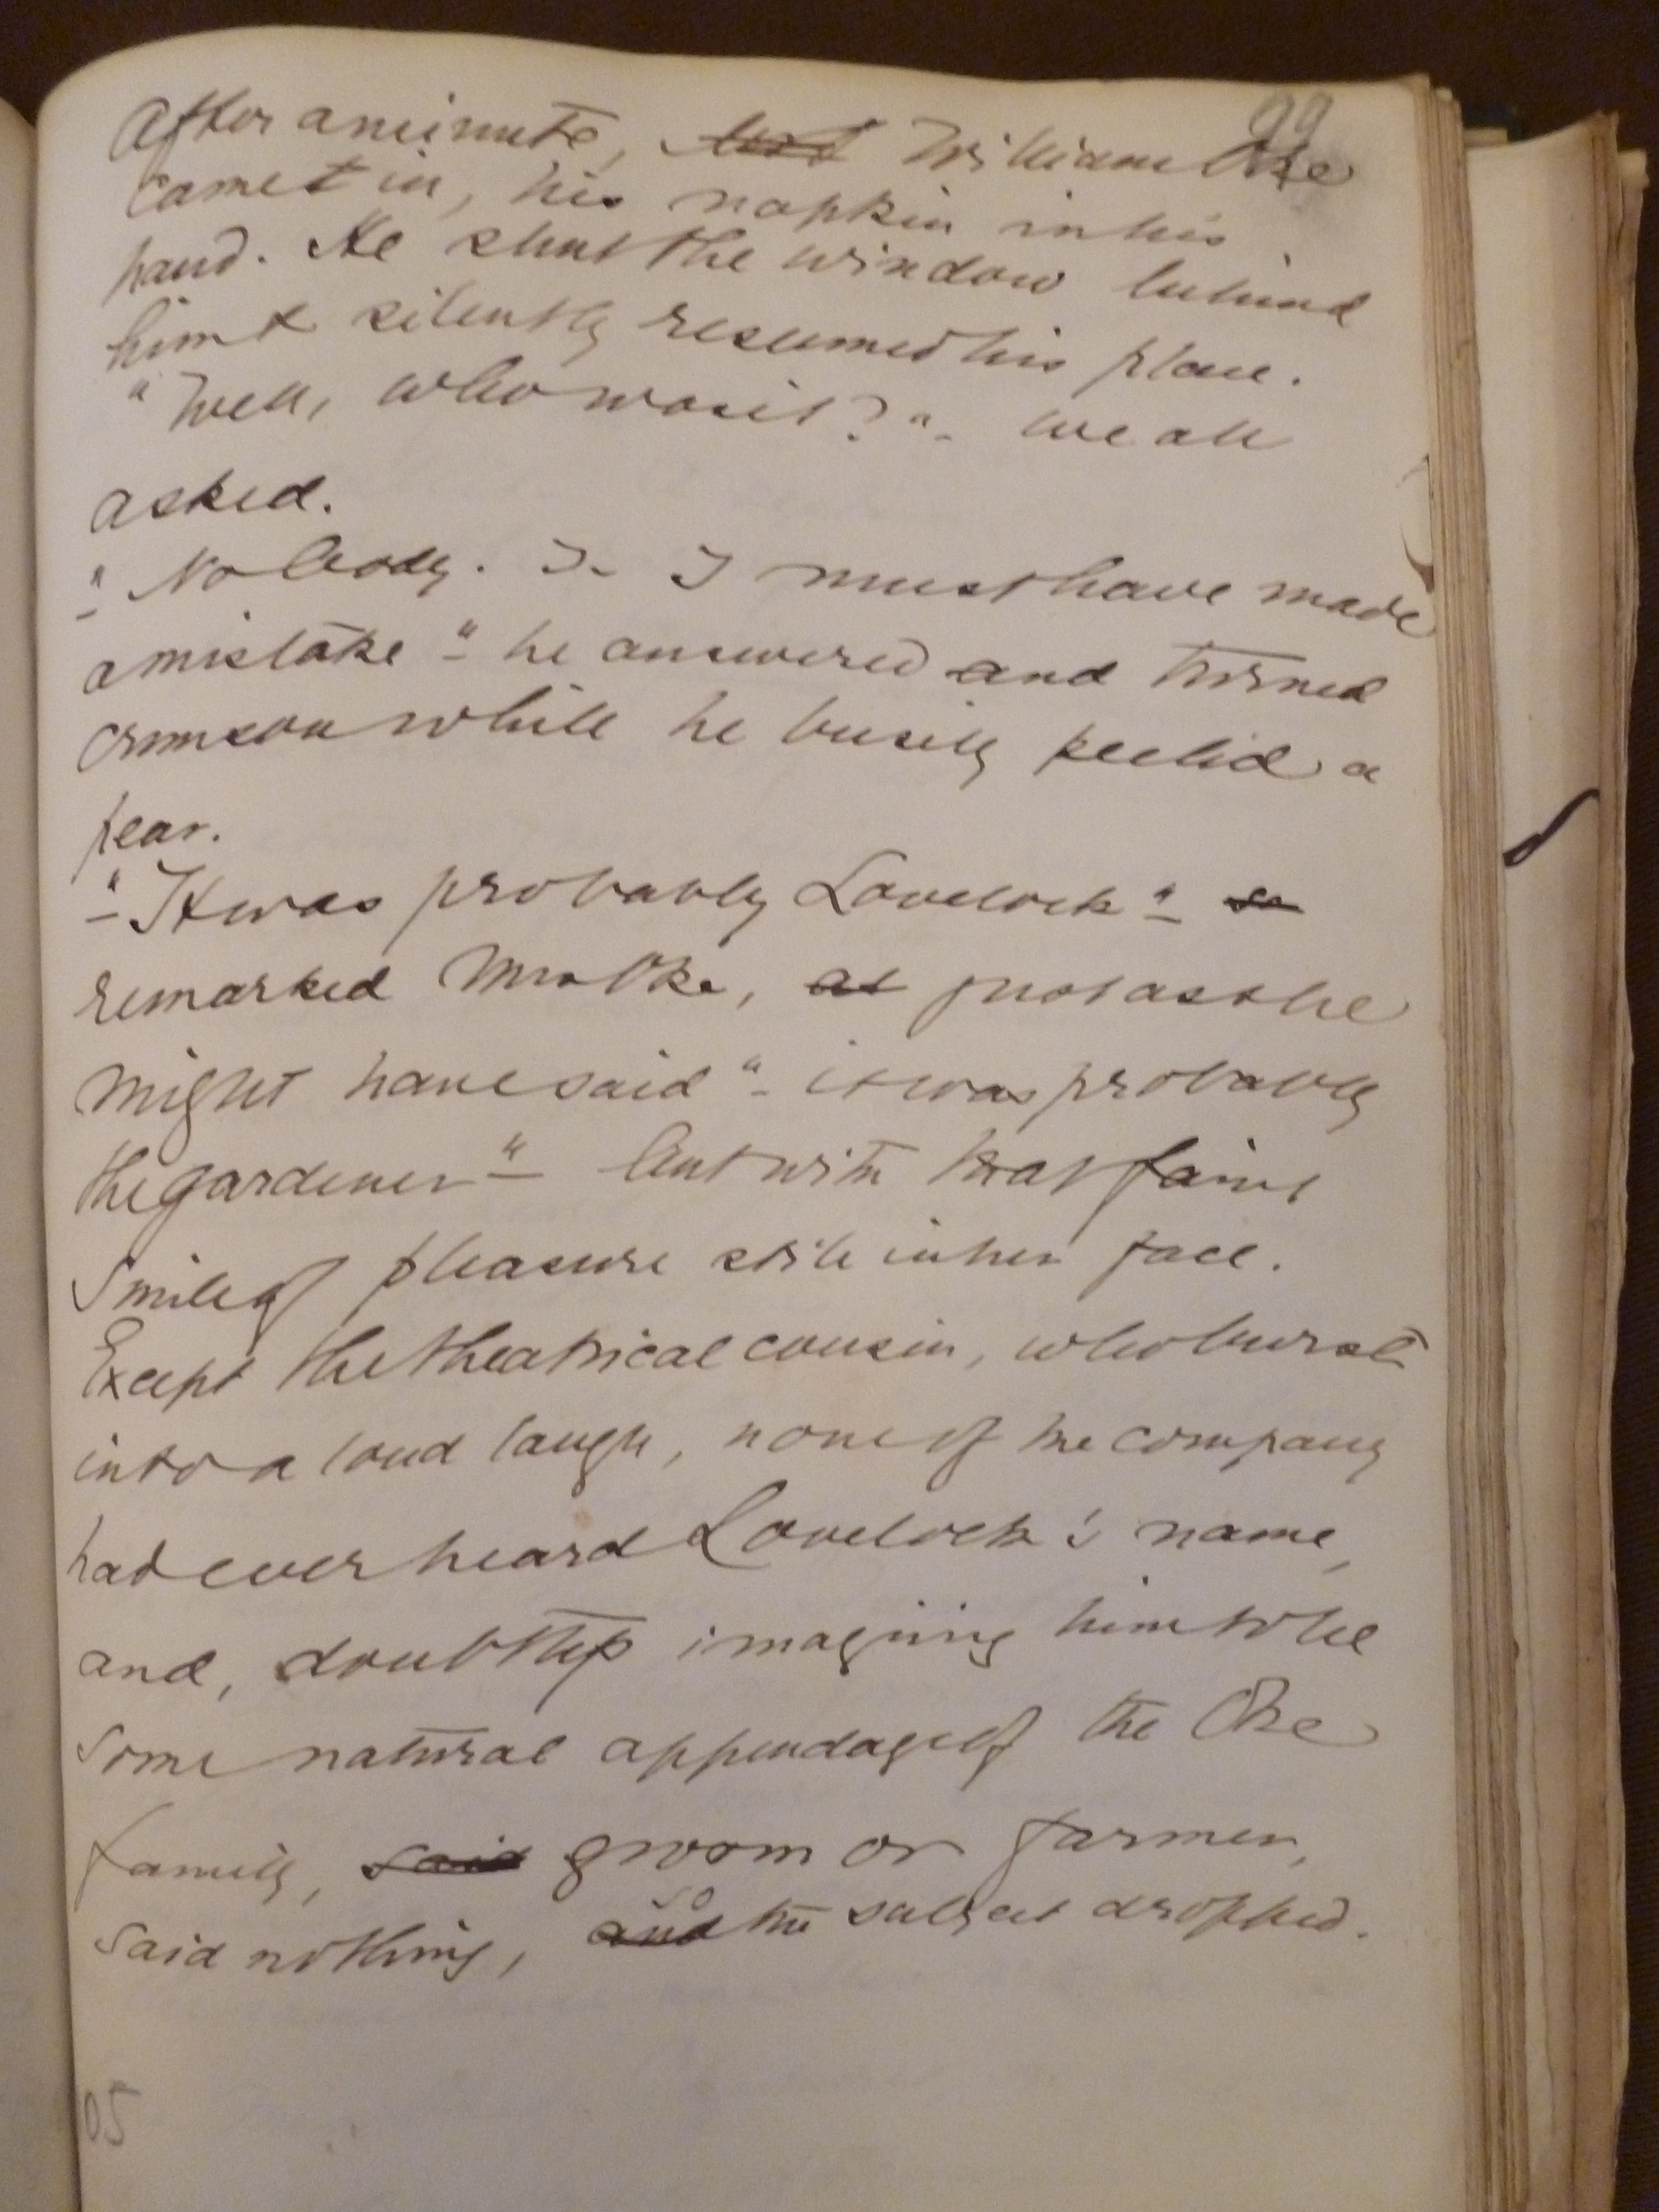 99
After a minute, William Oke
came in, his napkin in his
hand. He shut the window behind
him & silently resumed his place.
"Well, who was it?" - we all
asked.
"Nobody. I - I must have made
a mistake" - he answered and turned
crimson while he busily peeled a
pear.
"It was probably Lovelock" - so
remarked Mrs Oke, as just as she
might have said "- it was probably
the gardener" - but with that faint
smile of pleasure still in her face.
Except the theatrical cousin, who burst
into a loud laugh, none of the company
had ever heard Lovelock's name,
and, doubtless imagining him to be
some natural appendage of the Oke
family, said groom or farmer,
so
said nothing, and the subject dropped.
05